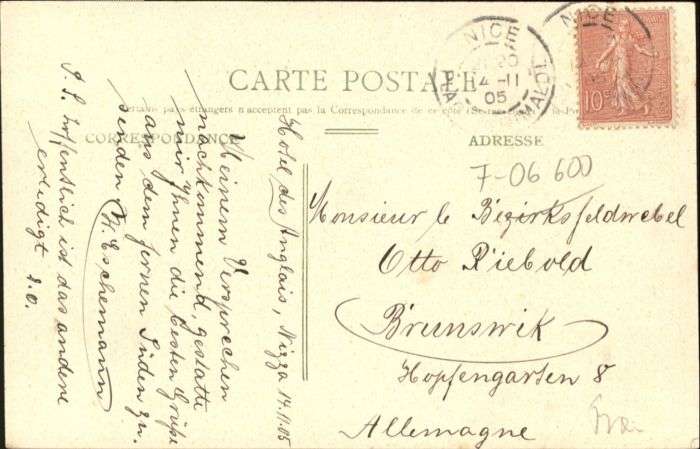 NICE
4-11
05
NICE
10c
CARTE POSTALE
Certains pays étrangers n'acceptent pas la Correspondance de ce côté
CORRESPONDANCE
ADRESSE
7-06 600
Hotel des Anglais, Nizza 14.11.05
Meinem Versprechen
nachkommend, gestatte
mir Ihnen die besten Grüße
aus dem fernen Süden zu
senden H. Eschemann
P.S. hoffentlich ist das andere
erledigt d.o.
Monsieur le Bezirksfeldwebel
Otto Riebold
Brunswik
Hopfengarten 8
Allemagne